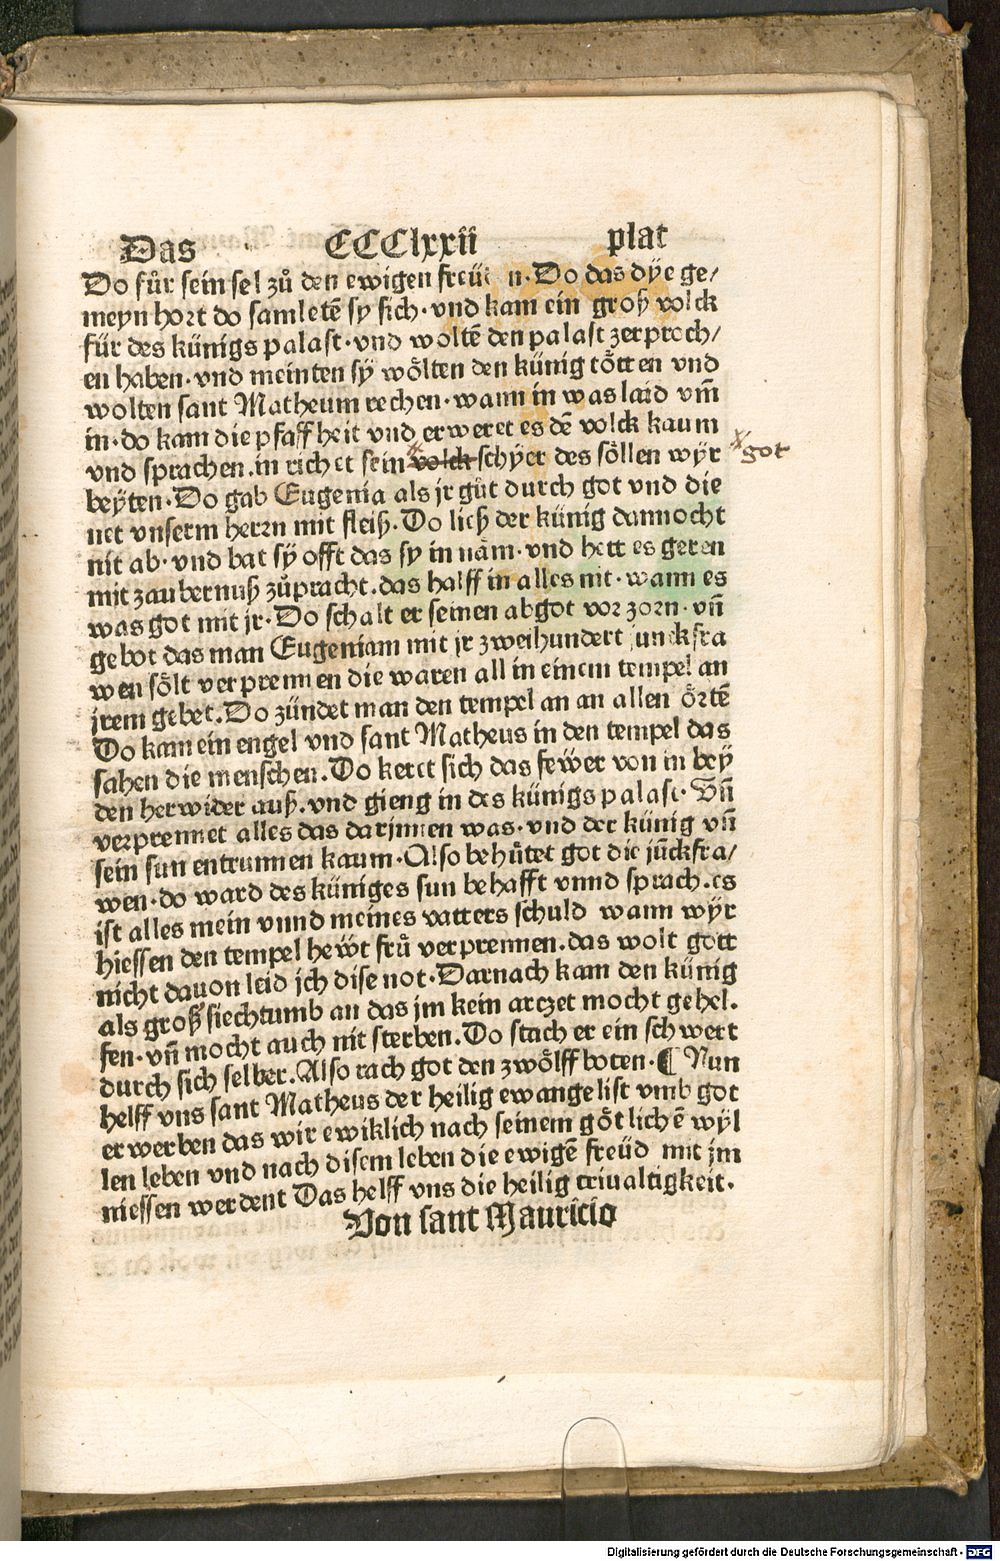 Das CCClxxii plat
Do fůr sein sel zů den ewigen freüden. Do das dÿe ge/
meyn hort do samletē sy sich. vnd kam ein groß volck
für des künigs palast. vnd woltē den palast zerprech/
en haben. vnd meinten sÿ wölten den künig tötten vnd
wolten sant Matheum rechen. wann in was laid vm̄
in. do kam die pfaffheit vnd erweret es dē volck kaum
vnd sprachen. in richet sein volck schÿer des söllen wÿr got
beÿten. Do gab Eugenia als jr gůt durch got vnd die
net vnserm herrn mit fleiß. Do ließ der künig dannocht
nit ab. vnd bat sÿ offt das sy in näm. vnd hett es geren
mit zaubernuß zůpracht. das halff in alles nit. wann es
was got mit jr. Do schalt er seinen abgot vor zorn. vn̄
gebot das man Eugeniam mit jr zweihundert junckfra
wen sölt verprennen die waren all in einem tempel an
jrem gebet. Do zündet man den tempel an an allen örtē
Do kam ein engel vnd sant Matheus in den tempel das
sahen die menschen. Do keret sich das fewer von in beÿ
den herwider auß. vnd gieng in des künigs palast. Vn̄
verprennet alles das darjnnen was. vnd der künig vn̄
sein sun entrunnen kaum. Also behůtet got die jūckfra/
wen. do ward des küniges sun behafft vnnd sprach. es
ist alles mein vnnd meines vatters schuld wann wÿr
hiessen den tempel heẅt frů verprennen. das wolt gott
nicht dauon leid ich dise not. Darnach kam den künig
als groß siechtumb an das jm kein arczet mocht gehel.
fen. vn̄ mocht auch nit sterben. Do stach er ein schwert
durch sich selber. Also rach got den zwölffboten. ¶ Nun
helff vns sant Matheus der heilig ewangelist vmb got
erwerben das wir ewiklich nach seinem götlichē wÿl
len leben vnd nach disem leben die ewigē freüd mit jm
niessen werdent Das helff vns die heilig triualtigkeit.
Von sant Mauricio
Digitalisierung gefördert durch die Deutsche Forschungsgemeinschaft - DFG